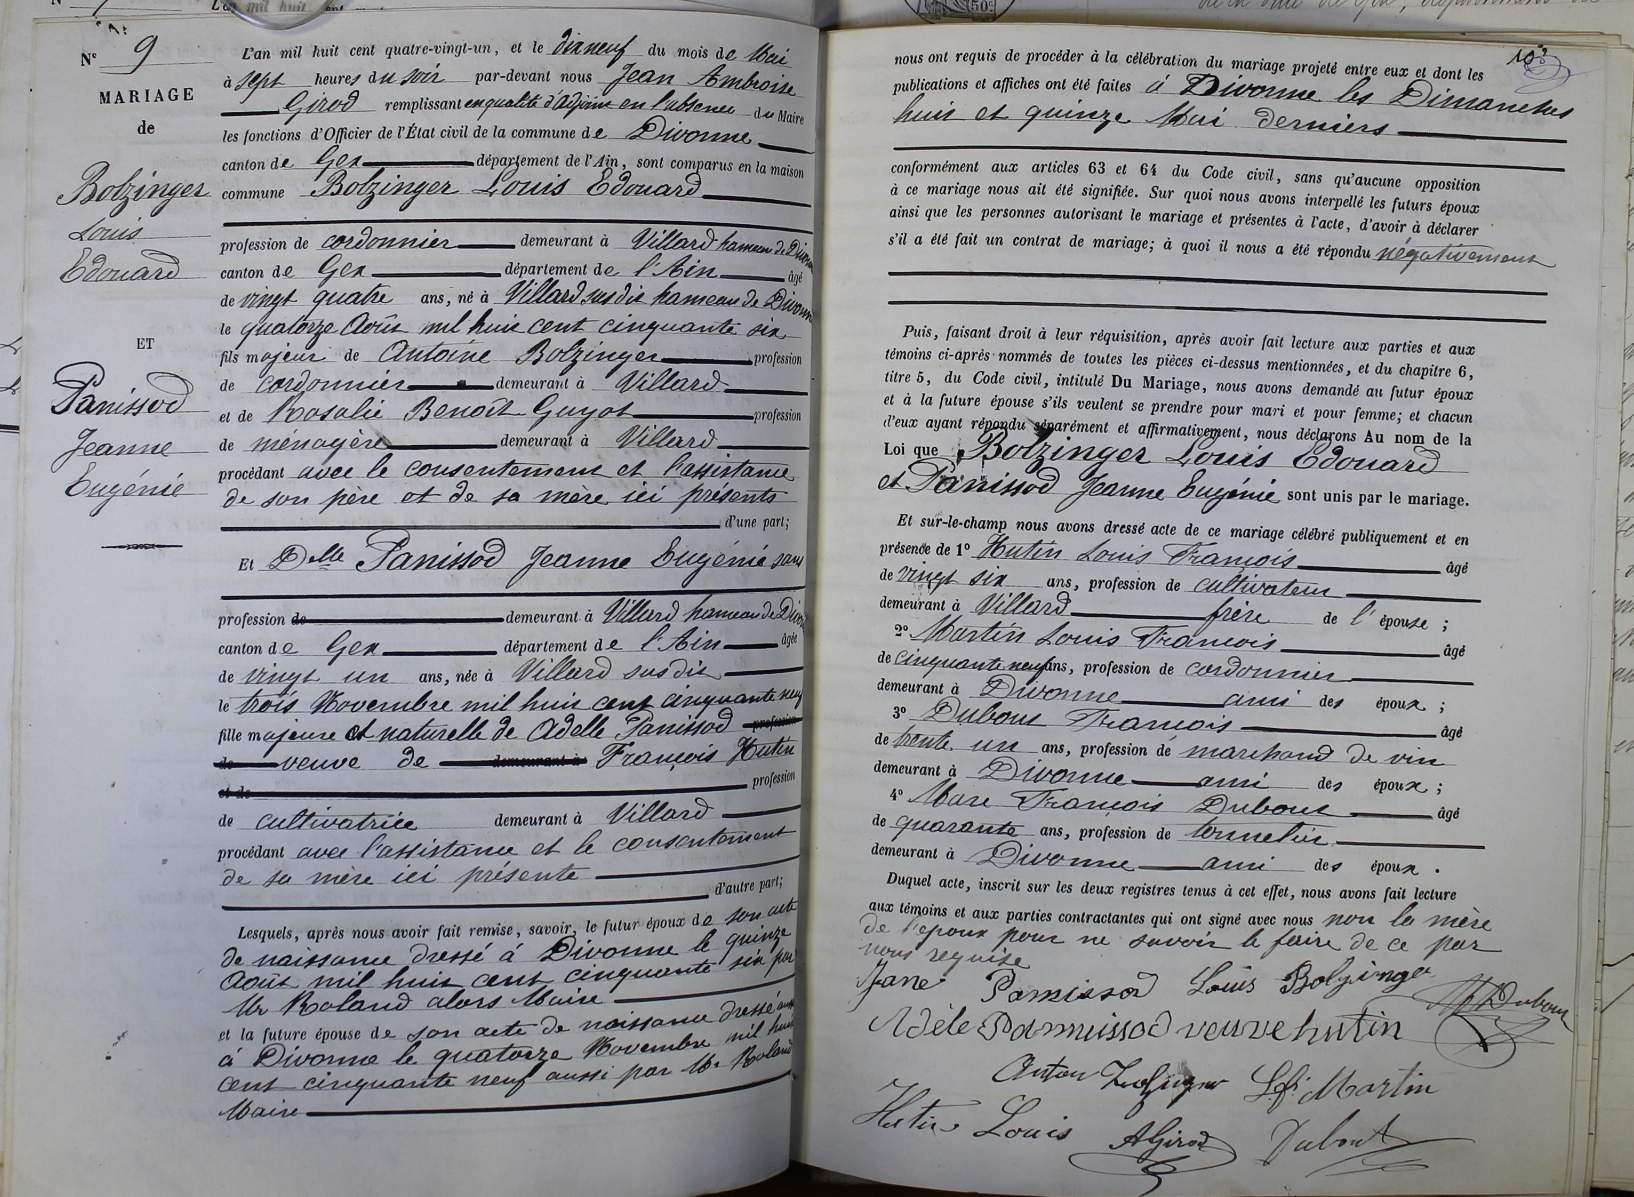 Nº 9
MARIAGE
de
Bolzinger
Louis
Edouard
ET
Panissod
Jeanne
Eugénie
L'an mil huit cent quatre-vingt-un, et le dix neuf du mois de Mai
à sept heures du soir par-devant nous Jean Ambroise
Girod remplissant en qualité d'adjoint en l'absence du Maire
les fonctions d'Officier de l'État civil de la commune de Divonne
canton de Gex département de l'Ain, sont comparus en la maison
commune Bolzinger Louis Edouard
profession de cordonnier demeurant à Villard hameau de Divonne
canton de Gex département de l'Ain âgé
de vingt quatre ans, né à Villard susdit hameau de Divonne
le quatorze Août mil huit cent cinquante six
fils majeur de Antoine Bolzinger profession
de cordonnier demeurant à Villard
et de Rosalie Benoît Guyot profession
de ménagère demeurant à Villard
procédant avec le consentement et l'assistance
de son père et de sa mère ici présents
d'une part;
Et Delle Panissod Jeanne Eugénie sans
profession de demeurant à Villard hameau de Divonne
canton de Gex département de l'Ain âgée
de vingt un ans, née à Villard susdit
le trois Novembre mil huit cent cinquante neuf
fille majeure et naturelle de Adelle Panissod profession
de veuve de demeurant à François Hutin
et de profession
de cultivatrice demeurant à Villard
procédant avec l'assistance et le consentement
de sa mère ici présente
d'autre part;
Lesquels, après nous avoir fait remise, savoir, le futur époux de son acte
de naissance dressé à Divonne le quinze
Août mil huit cent cinquante six par
Mr Roland alors Maire
et la future épouse de son acte de naissance dressé aussi
à Divonne le quatorze Novembre mil huit
cent cinquante neuf aussi par Mr Roland
Maire
nous ont requis de procéder à la célébration du mariage projeté entre eux et dont les
publications et affiches ont été faites à Divonne les Dimanches
huit et quinze Mai derniers
conformément aux articles 63 et 64 du Code civil, sans qu'aucune opposition
à ce mariage nous ait été signifiée. Sur quoi nous avons interpellé les futurs époux
ainsi que les personnes autorisant le mariage et présentes à l'acte, d'avoir à déclarer
s'il a été fait un contrat de mariage; à quoi il nous a été répondu négativement
Puis, faisant droit à leur réquisition, après avoir fait lecture aux parties et aux
témoins ci-après nommés de toutes les pièces ci-dessus mentionnées, et du chapitre 6,
titre 5, du Code civil, intitulé Du Mariage, nous avons demandé au futur époux
et à la future épouse s'ils veulent se prendre pour mari et pour femme; et chacun
d'eux ayant répondu séparément et affirmativement, nous déclarons Au nom de la
Loi que Bolzinger Louis Edouard
et Panissod Jeanne Eugénie sont unis par le mariage.
Et sur-le-champ nous avons dressé acte de ce mariage célébré publiquement et en
présence de 1º Hutin Louis François âgé
de vingt six ans, profession de cultivateur
demeurant à Villard frère de l'épouse;
2º Martin Louis François âgé
de cinquante neuf ans, profession de cordonnier
demeurant à Divonne ami des époux;
3º Dubout François âgé
de trente un ans, profession de marchand de vin
demeurant à Divonne ami des époux;
4º Marc François Dubout âgé
de quarante ans, profession de tonnelier
demeurant à Divonne ami des époux.
Duquel acte, inscrit sur les deux registres tenus à cet effet, nous avons fait lecture
aux témoins et aux parties contractantes qui ont signé avec nous non la mère
de l'époux pour ne savoir le faire de ce par
nous requise
Jane Panissod Louis Bolzinger Dubout
Adèle Pannissod veuve hutin
L.fs Martin
Hutin Louis AGirod Dubout